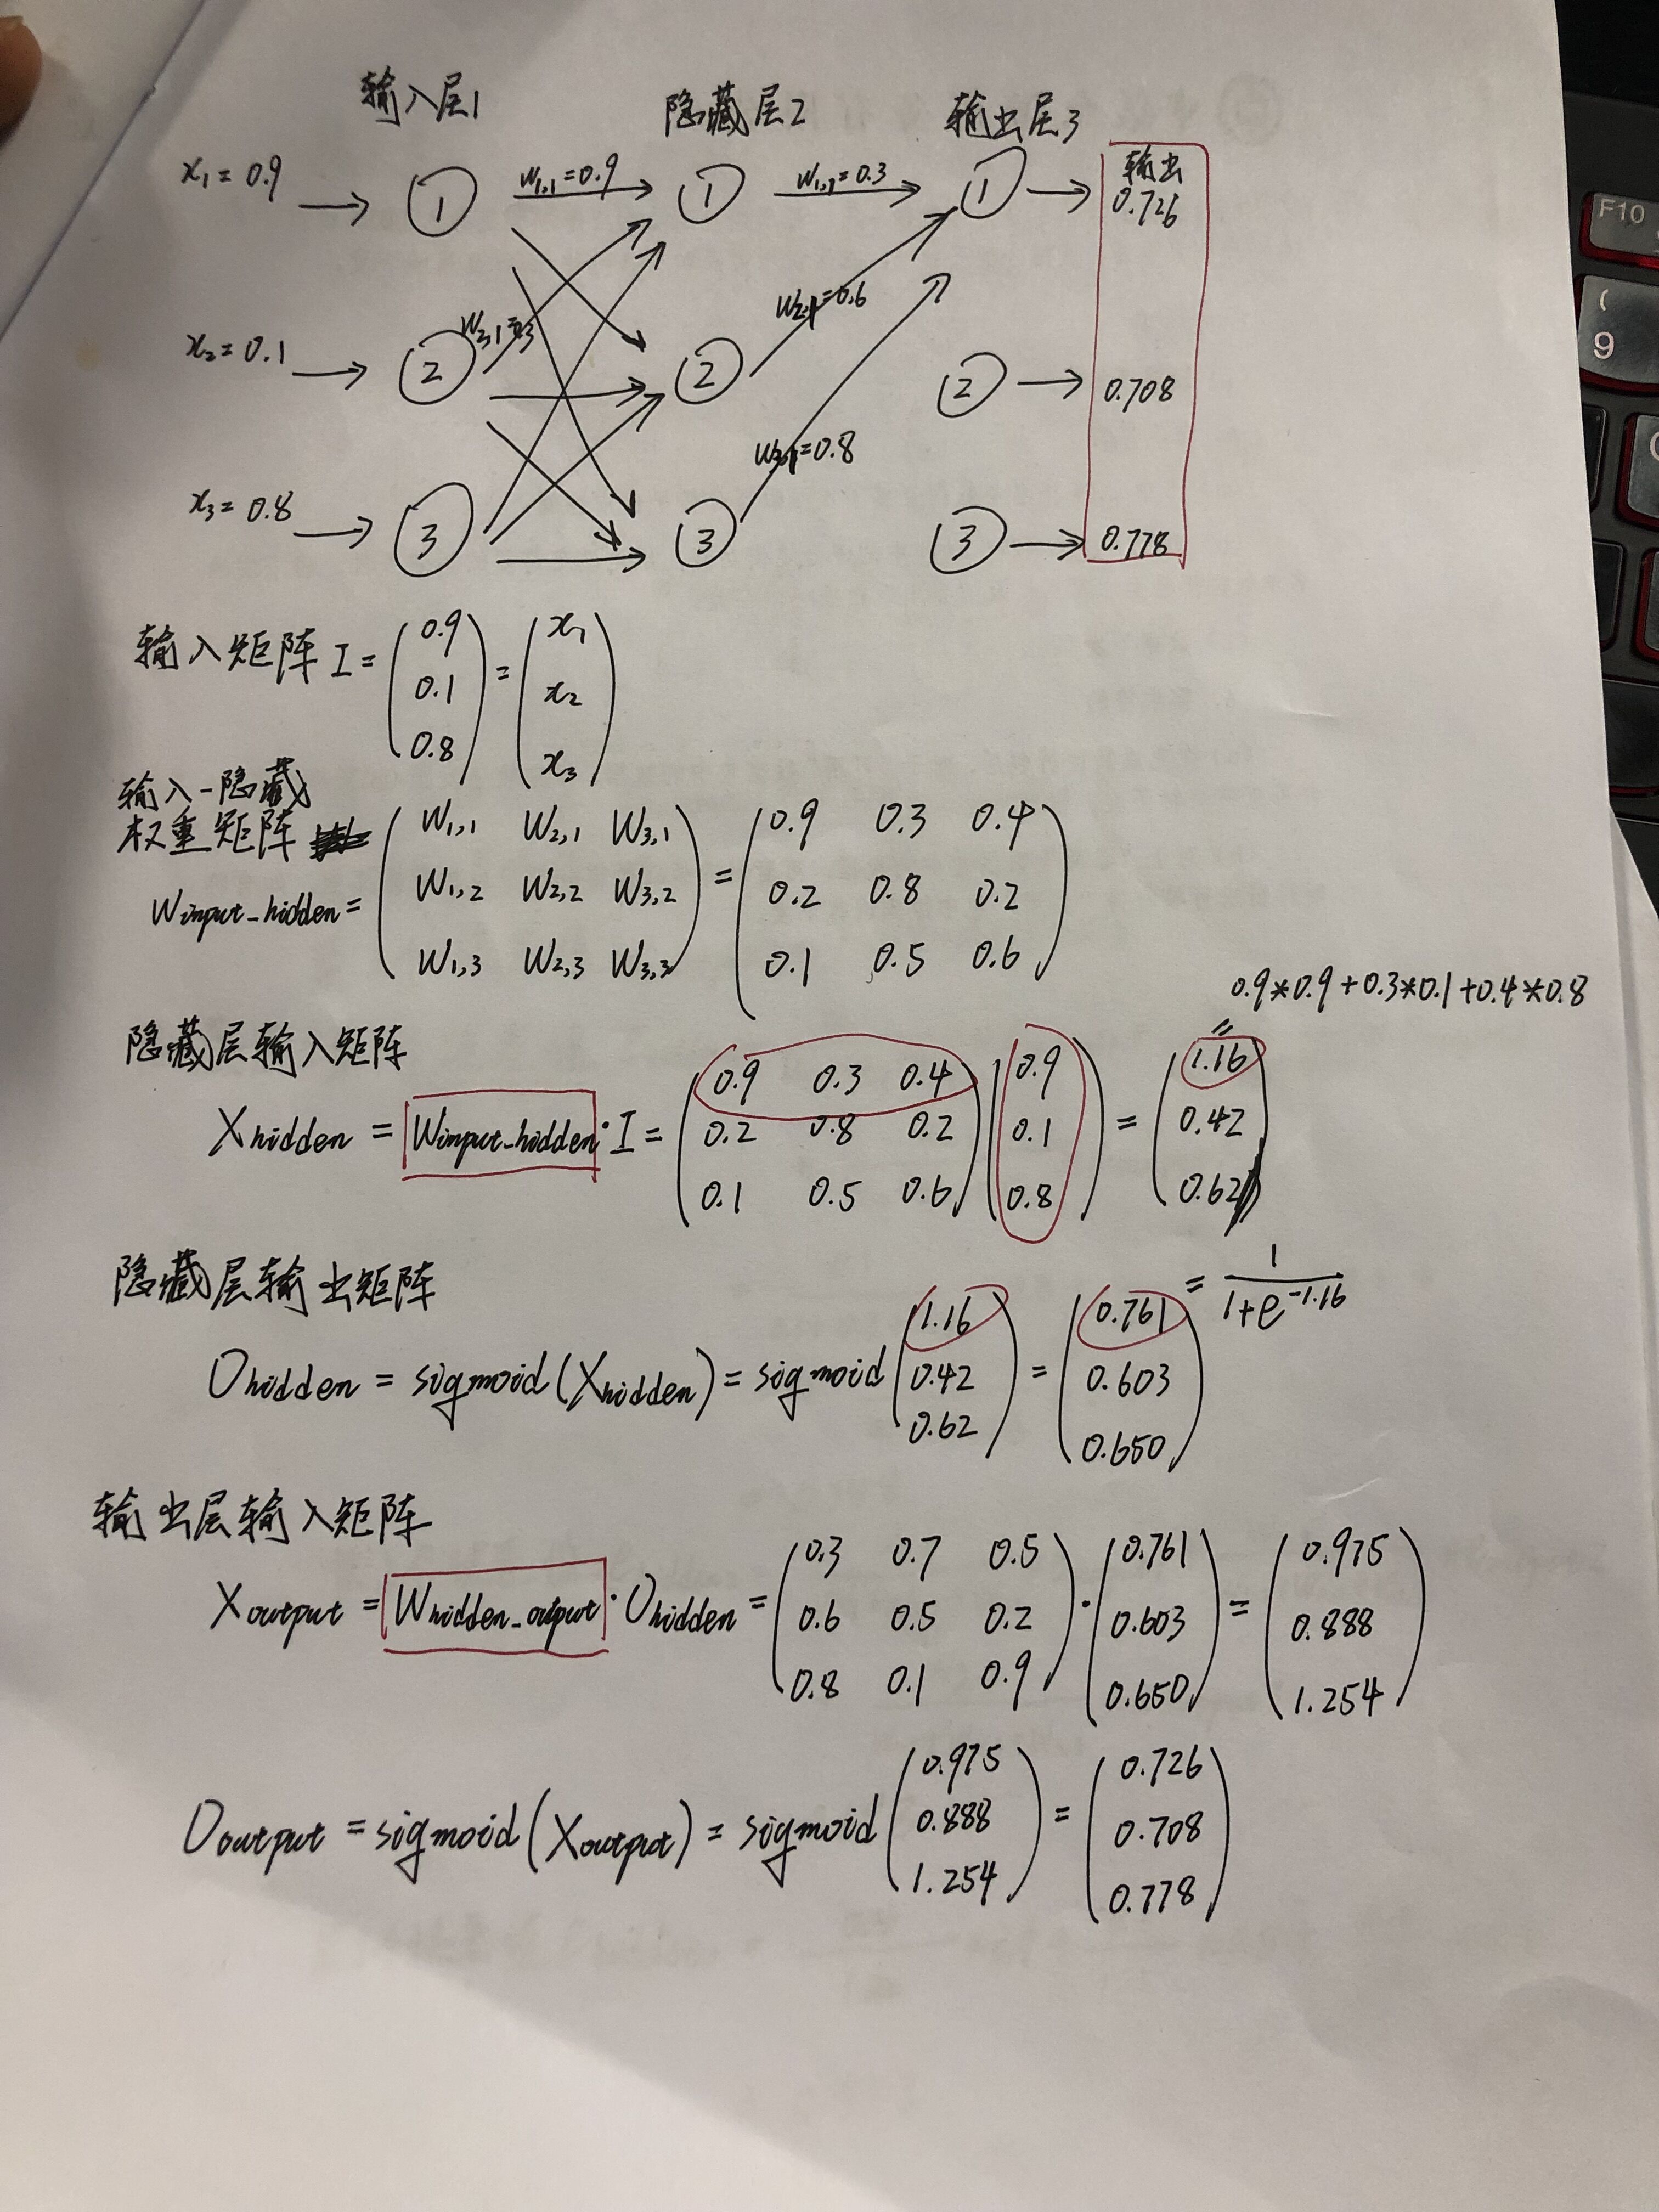 输入层1 隐藏层2 输出层3
x₁=0.9 → ① w₁,₁=0.9 ① w₁,₁=0.3 ① → 输出
0.726
x₂=0.1 → ② w₂,₁=0.3 ② w₂,₁=0.6 ② → 0.708
x₃=0.8 → ③ ③ w₃,₁=0.8 ③ → 0.778
输入矩阵 I = (0.9 0.1 0.8) = (x₁ x₂ x₃)
输入-隐藏
权重矩阵
Winput_hidden =
W1,1 W2,1 W3,1 = 0.9 0.3 0.4
W1,2 W2,2 W3,2 0.2 0.8 0.2
W1,3 W2,3 W3,3 0.1 0.5 0.6
0.9*0.9+0.3*0.1+0.4*0.8
隐藏层输入矩阵
Xhidden = Winput_hidden · I =
0.9 0.3 0.4 0.9 1.16
0.2 0.8 0.2 0.1 = 0.42
0.1 0.5 0.6 0.8 0.62
隐藏层输出矩阵
Ohidden = sigmoid(Xhidden) = sigmoid (1.16 0.42 0.62) = (0.761 0.603 0.650)
= 1/(1+e^-1.16)
输出层输入矩阵
Xoutput = Whidden_output · Ohidden =
0.3 0.7 0.5 0.761 0.975
0.6 0.5 0.2 · 0.603 = 0.888
0.8 0.1 0.9 0.650 1.254
Ooutput = sigmoid(Xoutput) = sigmoid (0.975 0.888 1.254) = (0.726 0.708 0.778)
F10
(
9